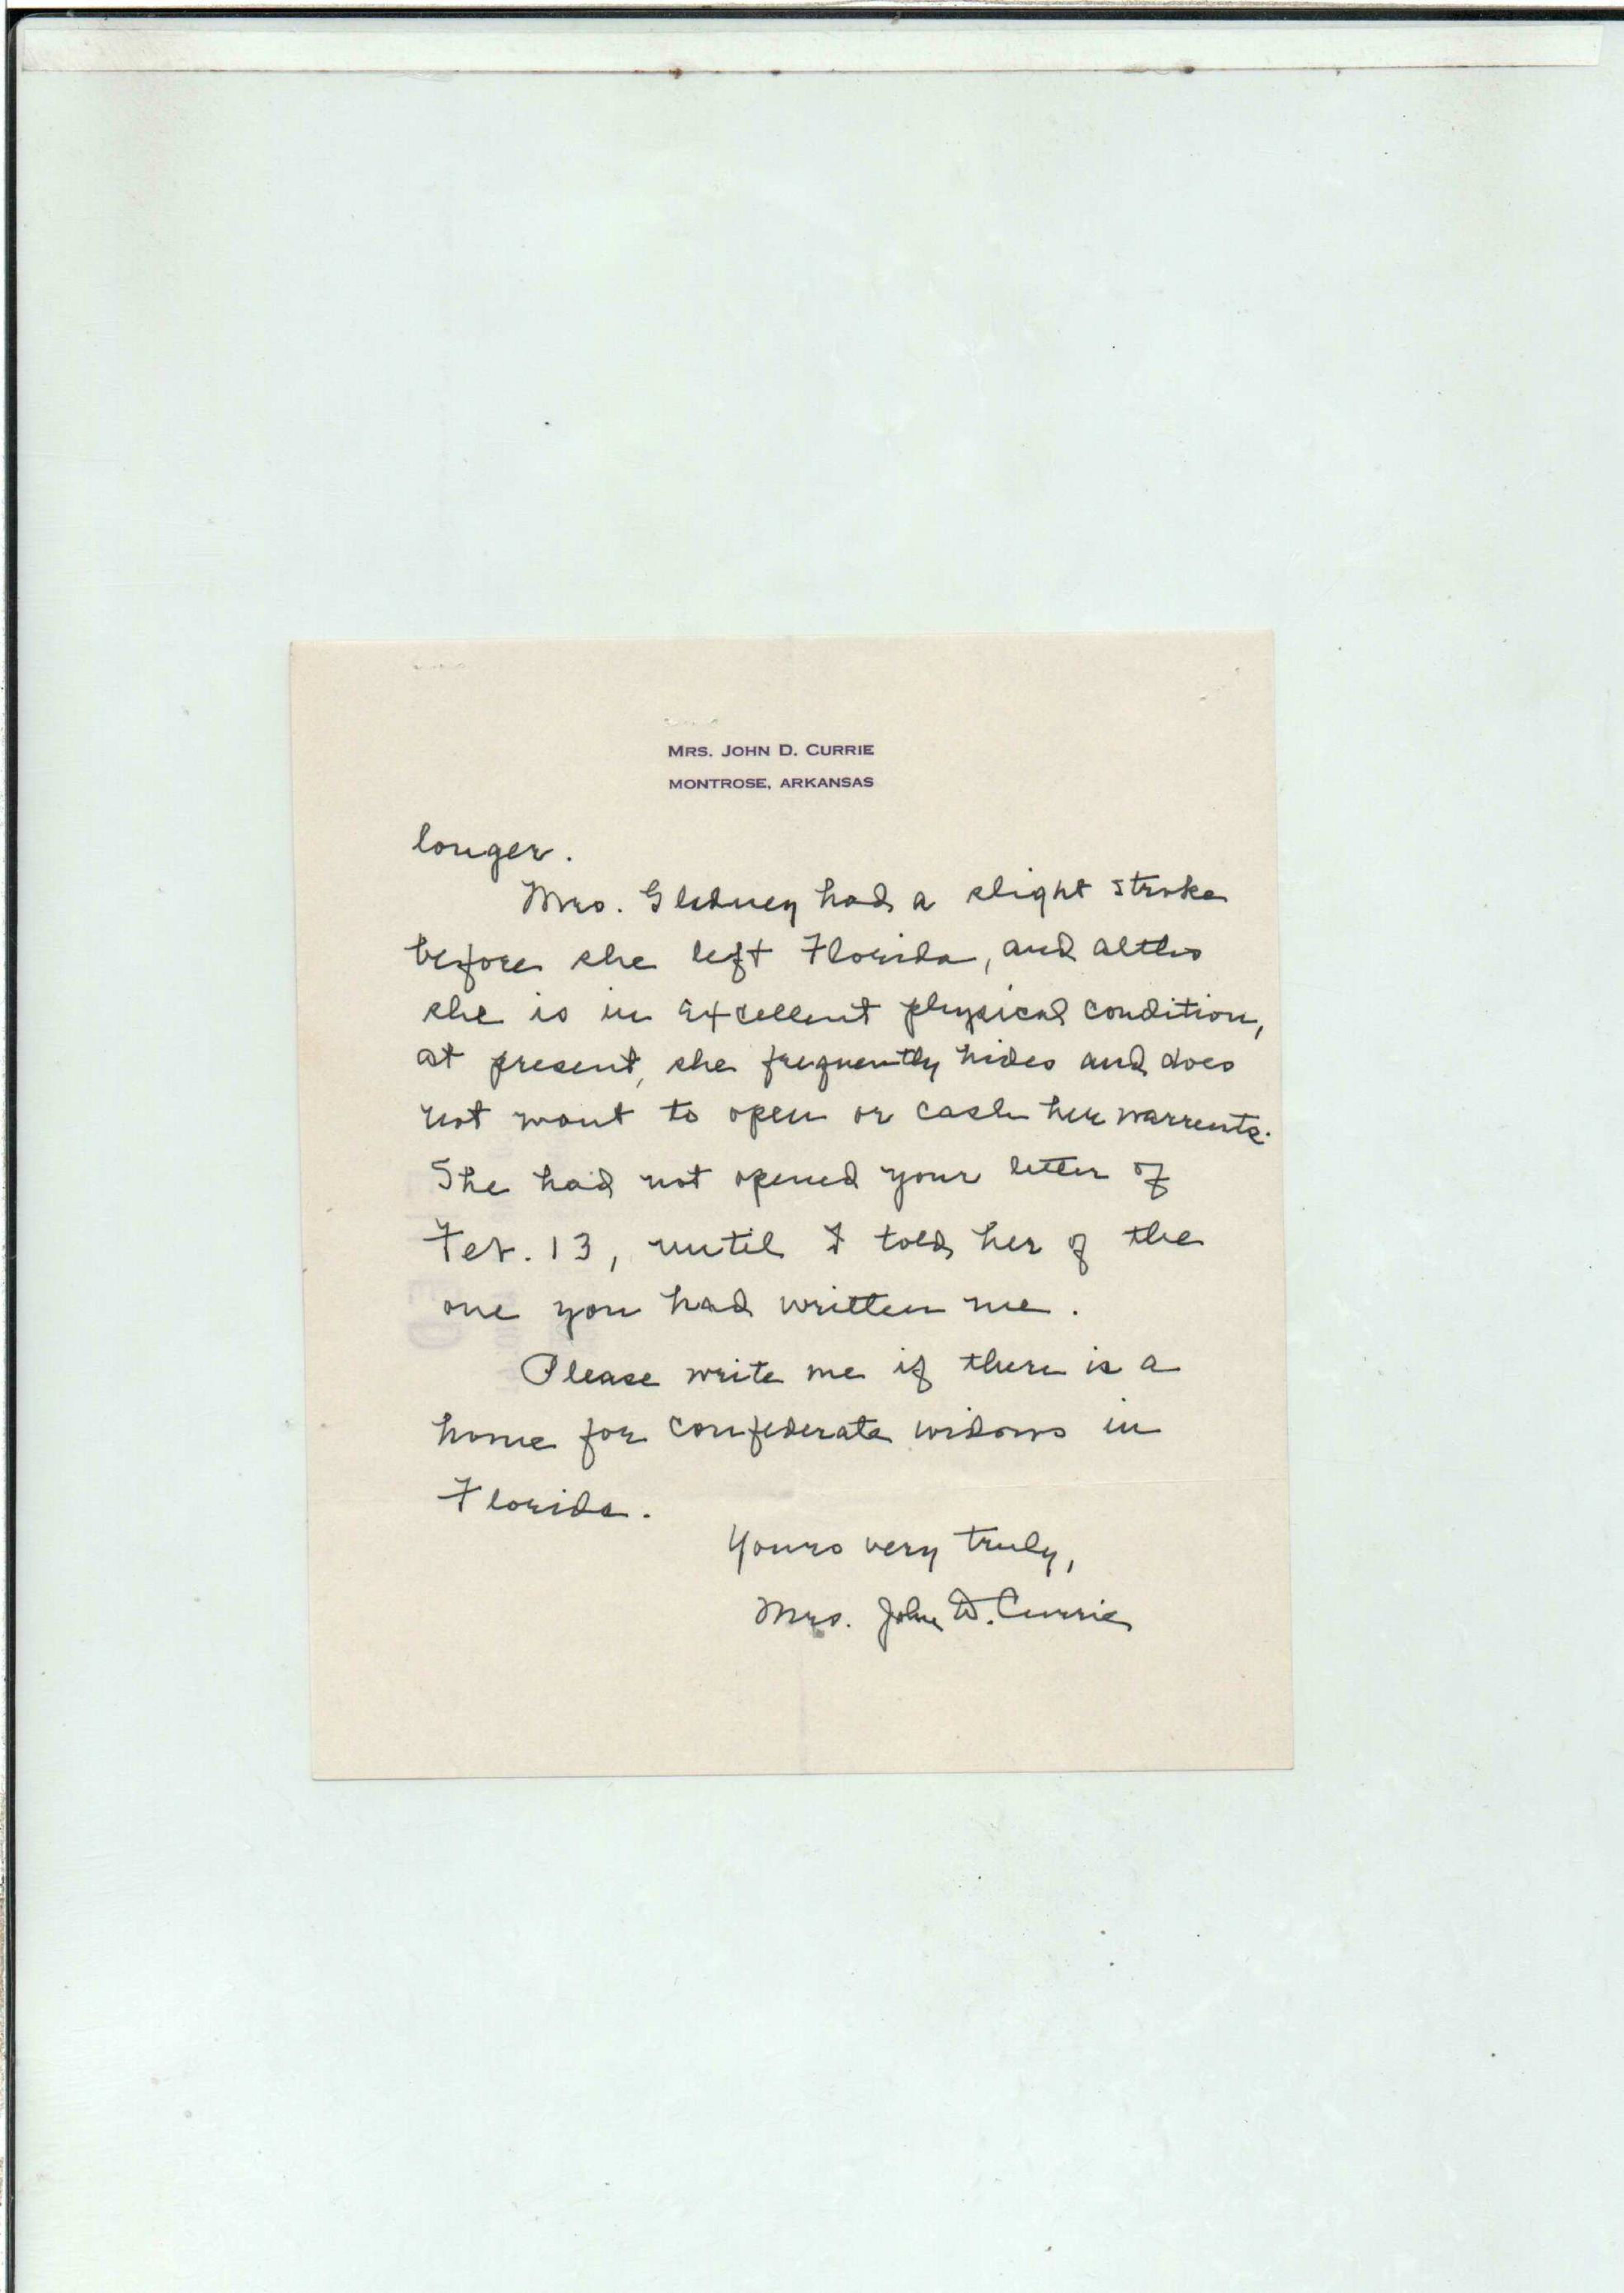 MRS. JOHN D. CURRIE
MONTROSE, ARKANSAS
longer.
Mrs. Gledney had a slight stroke
before she left Florida, and altho
she is in excellent physical condition,
at present, she frequently hides and does
not want to open or cash her warrents.
She had not opened your letter of
Feb. 13, until I told her of the
one you had written me.
Please write me if there is a
home for confederate widows in
Florida.
Yours very truly,
Mrs. John D. Currie